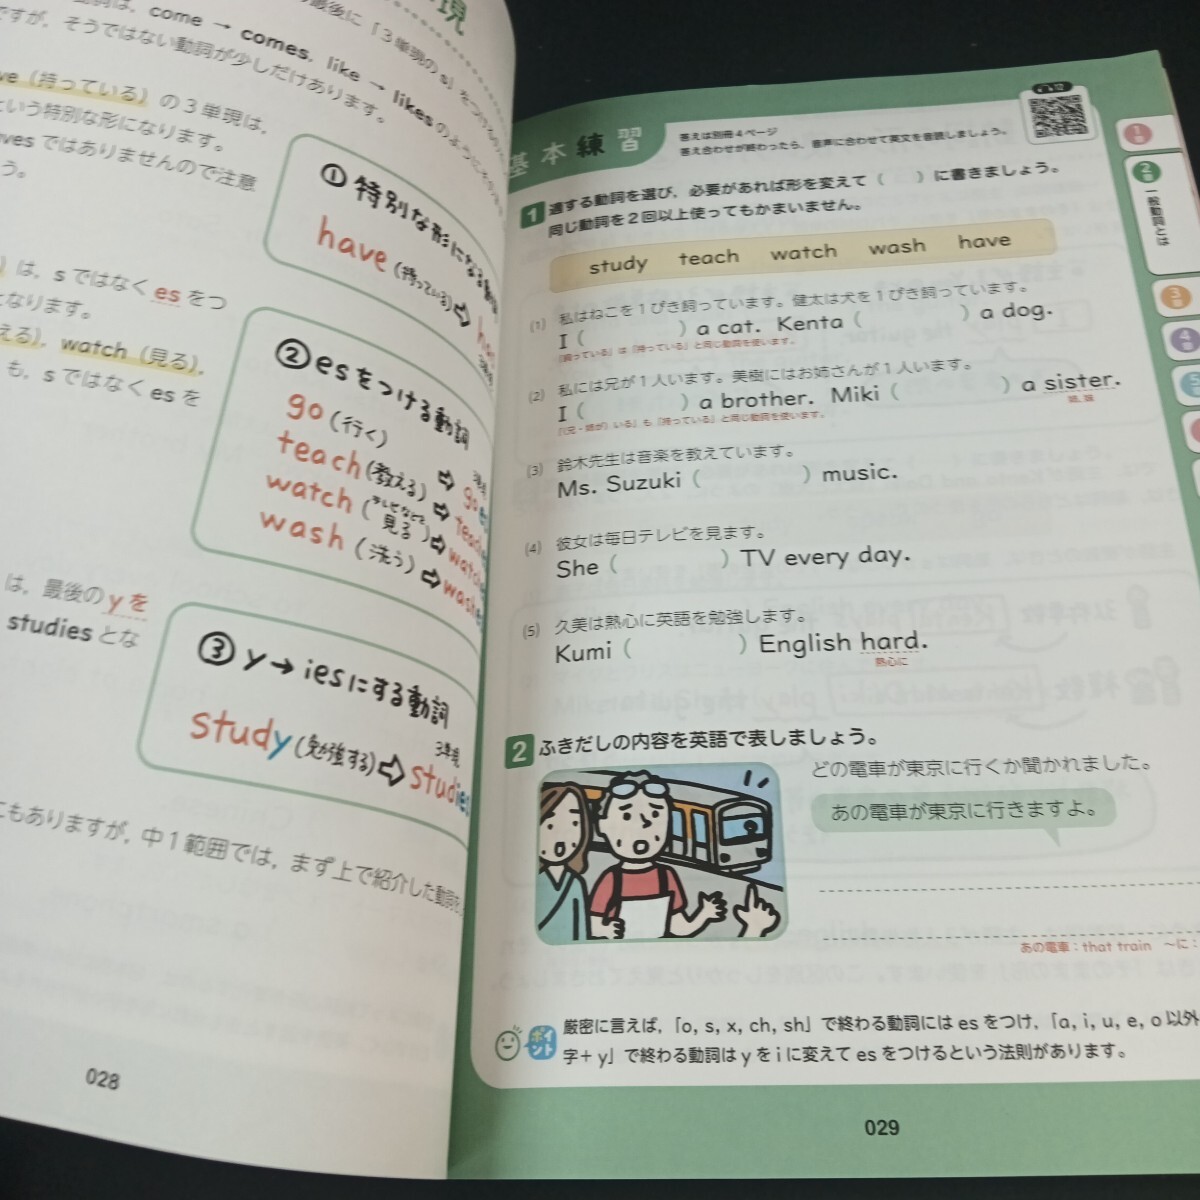 現
最後に「3単現のs」をつけるの
動詞は，come → comes，like → likesのように
ですが，そうではない動詞が少しだけあります。
ve（持っている）の３単現は，
という特別な形になります。
avesではありませんので注意
う。
は，sではなくesをつ
になります。
える），watch（見る），
も，sではなくesを
は，最後のyを
studiesとな
にもありますが，中１範囲では，まず上で紹介した動詞を
①特別な形になる動詞
have（持っている）⇨
②esをつける動詞
go（行く）
teach（教える）⇨
watch（テレビなどを見る）⇨
wash（洗う）⇨
③y→iesにする動詞
3単現
study（勉強する）⇨studies
028
基本練習
答えは別冊４ページ
答え合わせが終わったら，音声に合わせて英文を音読しましょう。
12
1 適する動詞を選び，必要があれば形を変えて（　）に書きましょう。
同じ動詞を２回以上使ってもかまいません。
study teach watch wash have
(1) 私はねこを１ぴき飼っています。健太は犬を１ぴき飼っています。
I (　) a cat. Kenta (　) a dog.
「飼っている」は「持っている」と同じ動詞を使います。
(2) 私には兄が１人います。美樹にはお姉さんが１人います。
I (　) a brother. Miki (　) a sister.
姉，妹
「(兄・姉が)いる」も「持っている」と同じ動詞を使います。
(3) 鈴木先生は音楽を教えています。
Ms. Suzuki (　) music.
(4) 彼女は毎日テレビを見ます。
She (　) TV every day.
(5) 久美は熱心に英語を勉強します。
Kumi (　) English hard.
熱心に
2 ふきだしの内容を英語で表しましょう。
どの電車が東京に行くか聞かれました。
あの電車が東京に行きますよ。
あの電車：that train　〜に：
ポイント
厳密に言えば，「o, s, x, ch, sh」で終わる動詞には es をつけ，「a, i, u, e, o 以外
字＋y」で終わる動詞は y を i に変えて es をつけるという法則があります。
029
1章
2章
一般動詞とは
3章
4章
5